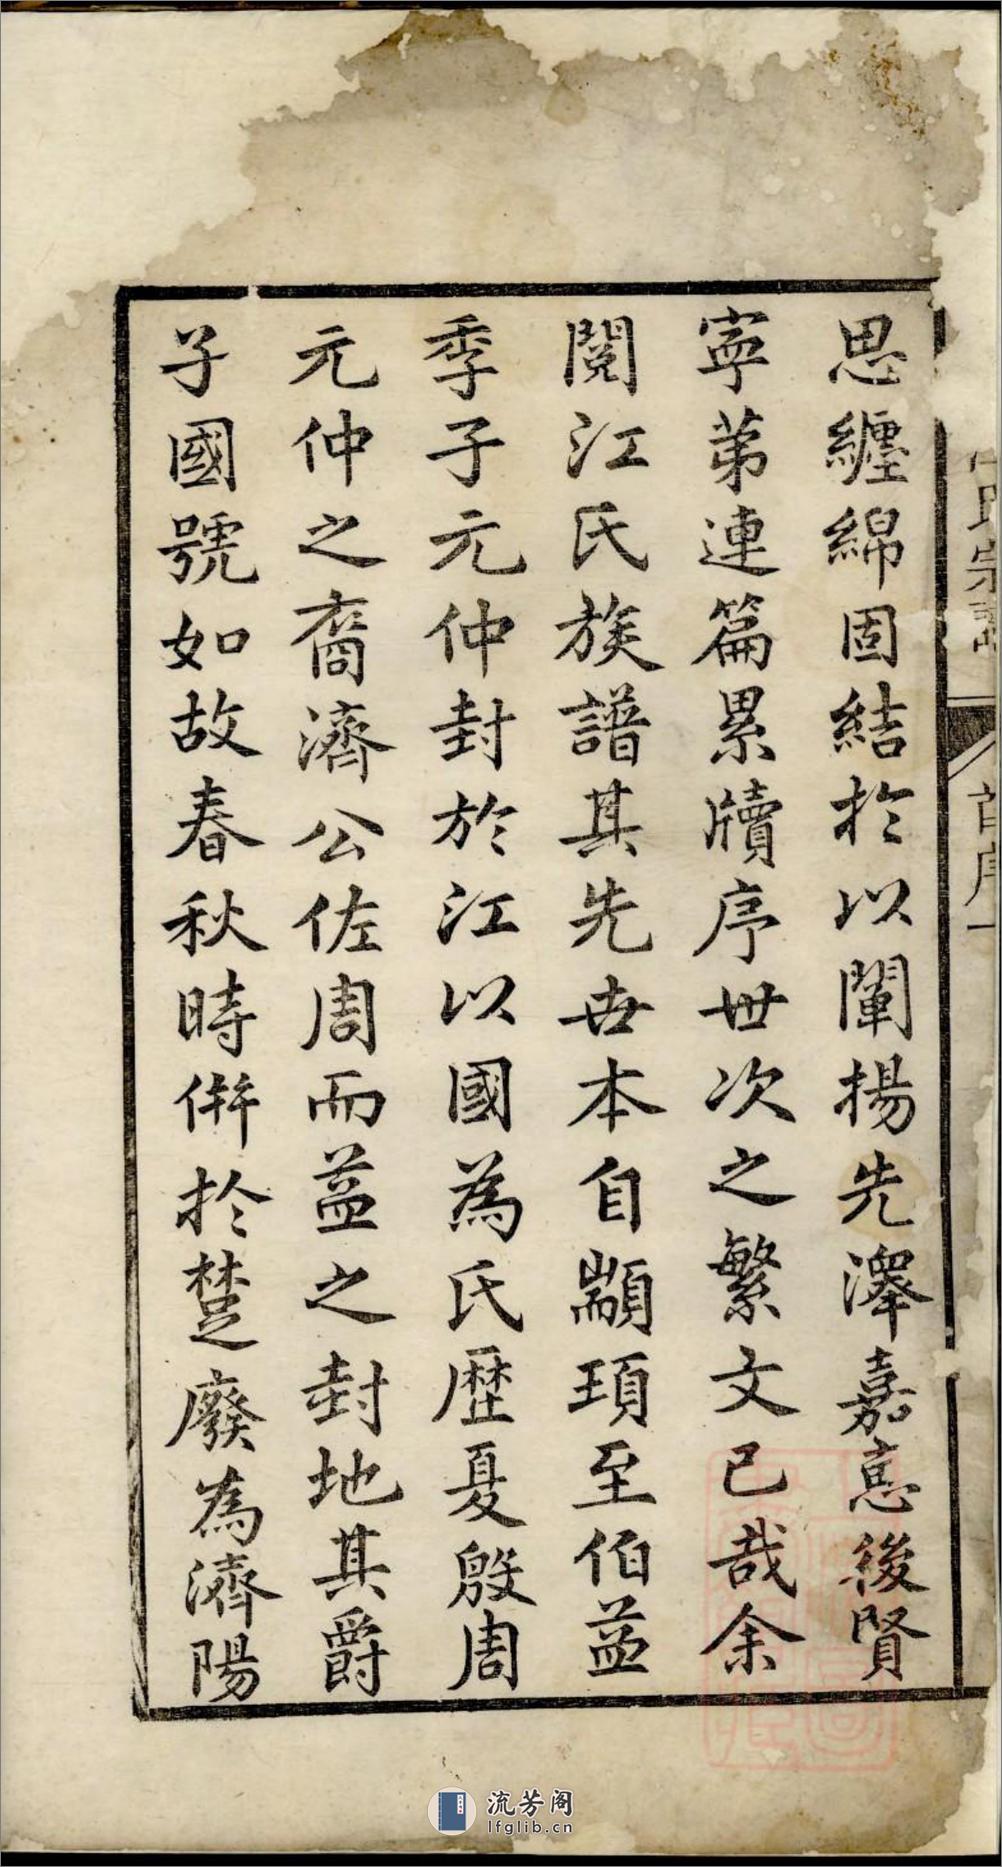 思纏綿固結於以闡揚先澤嘉惠後賢
寜苐連篇累牘序世次之繁文已哉余
閱江氏族譜其先世本自顓頊至伯益
季子元仲封於江以國為氏歷夏殷周
元仲之裔濟公佐周而益之封地其爵
子國號如故春秋時併於楚廢為濟陽
氏宗譜
首序一
流芳阁
lfglib.cn